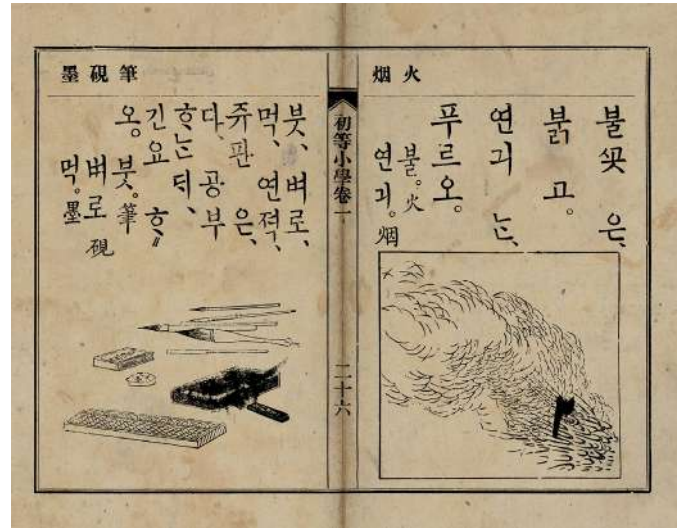 火烟
불ᄭᅩᆺ은、
붉고。
연긔는、
푸르오。
불。火
연긔。烟
初等小學卷一
二十六
筆硯墨
붓、벼로、
먹、연젹、
쥬판은、
다、공부
ᄒᆞ는ᄃᆡ、
긴요ᄒᆞ〃
오。붓。筆
벼로 硯
먹。墨